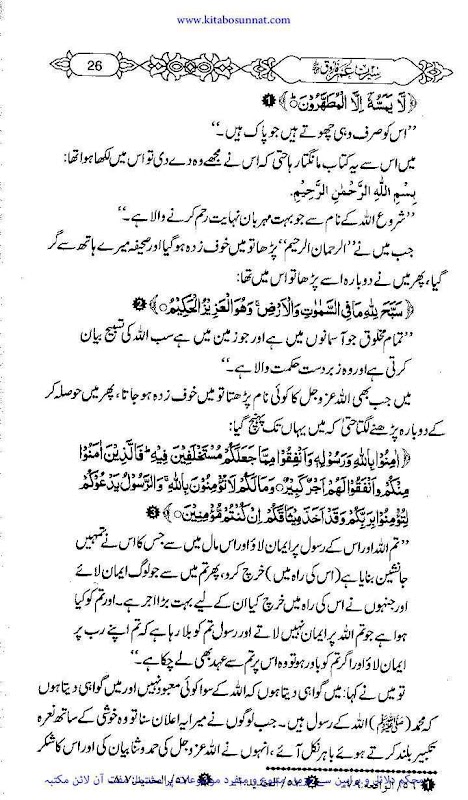 www.kitabosunnat.com
سیرت عمر فاروق
26
﴿لَا يَمَسُّهٗ اِلَّا الْمُطَهَّرُوْنَ﴾ ❶
’’اس کو صرف وہی چھوتے ہیں جو پاک ہیں۔‘‘
میں اس سے یہ کتاب مانگتا رہا حتی کہ اس نے مجھے وہ دے دی تو اس میں لکھا ہوا تھا:
بِسْمِ اللّٰهِ الرَّحْمٰنِ الرَّحِيْمِ.
’’شروع اللہ کے نام سے جو بہت مہربان نہایت رحم کرنے والا ہے۔‘‘
جب میں نے ’’الرحمان الرحیم‘‘ پڑھا تو میں خوف زدہ ہو گیا اور صحیفہ میرے ہاتھ سے گر
گیا، پھر میں نے دوبارہ اسے پڑھا تو اس میں تھا:
﴿سَبَّحَ لِلّٰهِ مَا فِي السَّمٰوٰتِ وَالْاَرْضِ ۚ وَهُوَ الْعَزِيْزُ الْحَكِيْمُ﴾ ❷
’’تمام مخلوق جو آسمانوں میں ہے اور جو زمین میں ہے سب اللہ کی تسبیح بیان
کرتی ہے اور وہ زبردست حکمت والا ہے۔‘‘
میں جب بھی اللہ عزوجل کا کوئی نام پڑھتا تو میں خوف زدہ ہو جاتا، پھر میں حوصلہ کر
کے دوبارہ پڑھنے لگتا حتیٰ کہ میں یہاں تک پہنچ گیا:
﴿اٰمِنُوْا بِاللّٰهِ وَرَسُوْلِهٖ وَاَنْفِقُوْا مِمَّا جَعَلَكُمْ مُّسْتَخْلَفِيْنَ فِيْهِ ؕ فَالَّذِيْنَ اٰمَنُوْا
مِنْكُمْ وَاَنْفَقُوْا لَهُمْ اَجْرٌ كَبِيْرٌ ۝ وَمَا لَكُمْ لَا تُؤْمِنُوْنَ بِاللّٰهِ ۚ وَالرَّسُوْلُ يَدْعُوْكُمْ
لِتُؤْمِنُوْا بِرَبِّكُمْ وَقَدْ اَخَذَ مِيْثَاقَكُمْ اِنْ كُنْتُمْ مُّؤْمِنِيْنَ﴾ ❸
’’تم اللہ اور اس کے رسول پر ایمان لاؤ اور اس مال میں سے جس کا اس نے تمہیں
جانشین بنایا ہے (اس کی راہ میں) خرچ کرو، پھر تم میں سے جو لوگ ایمان لائے
اور جنہوں نے اس کی راہ میں خرچ کیا ان کے لیے بہت بڑا اجر ہے۔ اور تم کو کیا
ہوا ہے جو تم اللہ پر ایمان نہیں لاتے اور رسول تم کو بلا رہا ہے کہ تم اپنے رب پر
ایمان لاؤ اور اگر تم کو باور ہو تو وہ اس پر تم سے عہد بھی لے چکا ہے۔‘‘
تو میں نے کہا: میں گواہی دیتا ہوں کہ اللہ کے سوا کوئی معبود نہیں اور میں گواہی دیتا ہوں
کہ محمد (ﷺ) اللہ کے رسول ہیں۔ جب لوگوں نے میرا یہ اعلان سنا تو وہ خوشی کے ساتھ نعرہ
تکبیر بلند کرتے ہوئے باہر نکل آئے، انہوں نے اللہ عزوجل کی حمد و ثنا بیان کی اور اس کا شکر
محکم دلائل و براہین سے مزین متنوع و منفرد موضوعات پر مشتمل مفت آن لائن مکتبہ